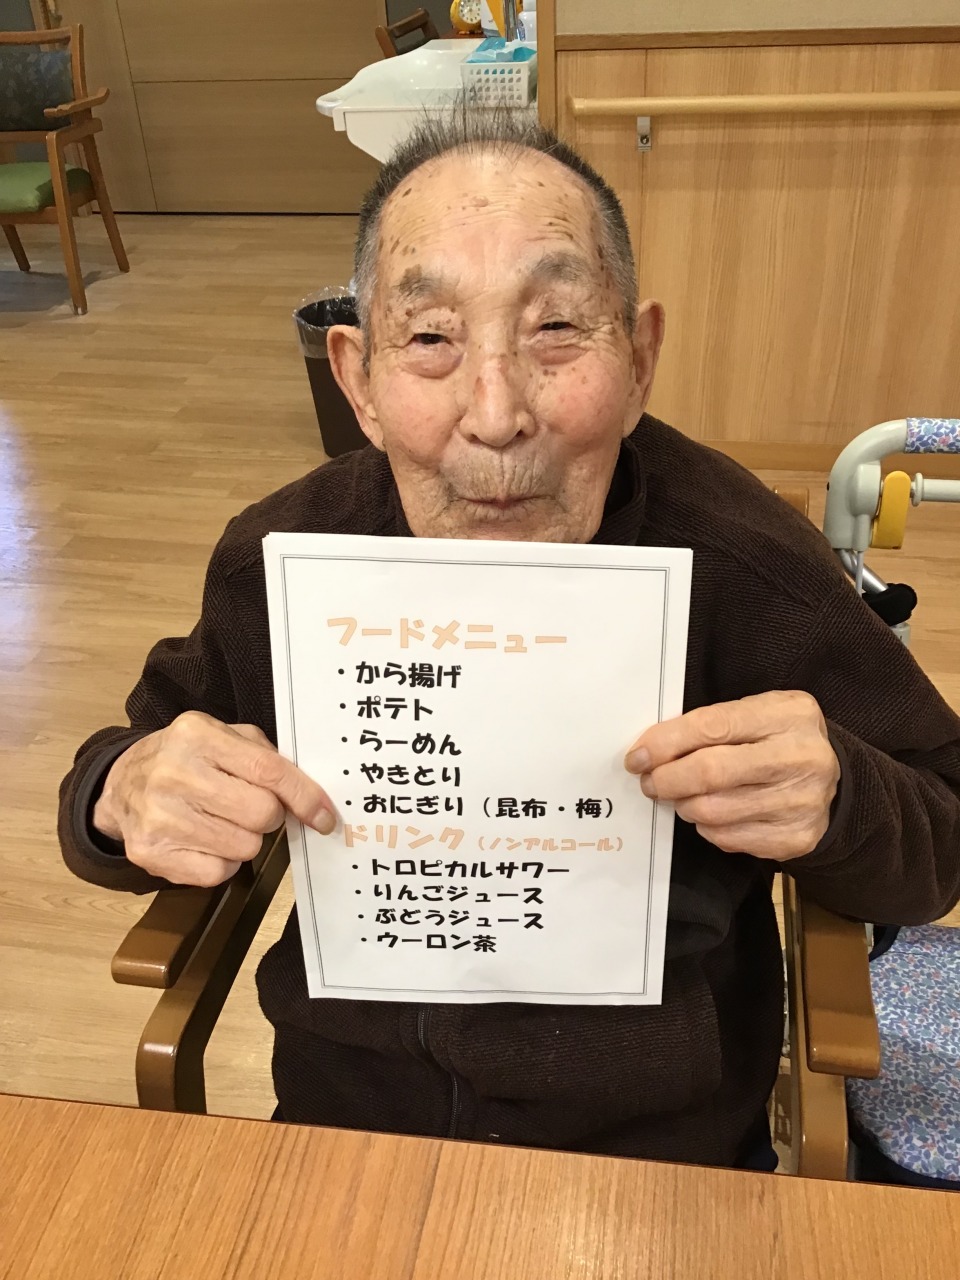 フードメニュー
・から揚げ
・ポテト
・らーめん
・やきとり
・おにぎり（昆布・梅）
ドリンク（ノンアルコール）
・トロピカルサワー
・りんごジュース
・ぶどうジュース
・ウーロン茶